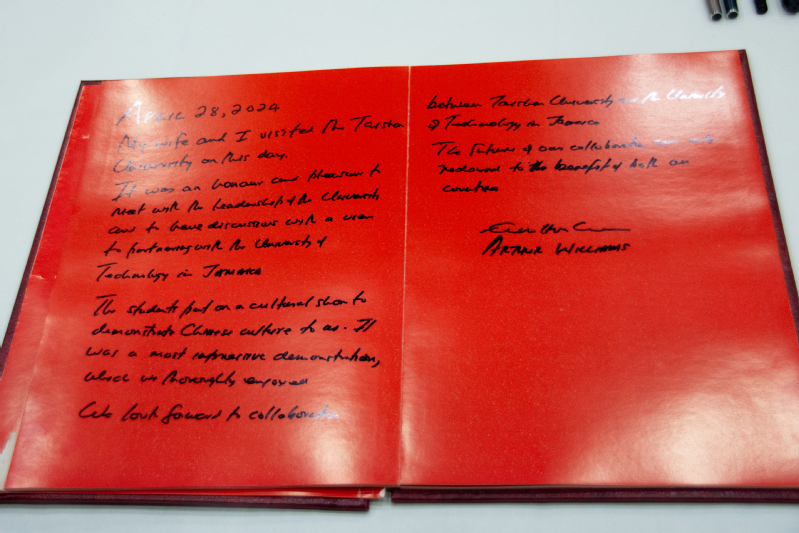 April 28, 2024
My wife and I visited the Taishan
University on this day.
It was an honour and pleasure to
meet with the Leadership of the University
and to have discussions with a view
to partnering with the University of
Technology in Jamaica
The students put on a cultural show to
demonstrate Chinese culture to us. It
was a most impressive demonstration,
which we thoroughly enjoyed
We look forward to collaboration
between Taishan University and the University
of Technology in Jamaica
The future of our collaboration can only
redound to the benefit of both our
countries
ARTHUR WILLIAMS